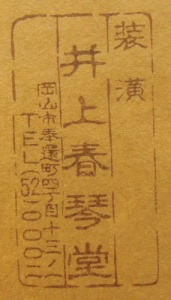 装潢
井上春琴堂
岡山市奉還町四丁目十三ノ二
TEL(52)〇〇〇二